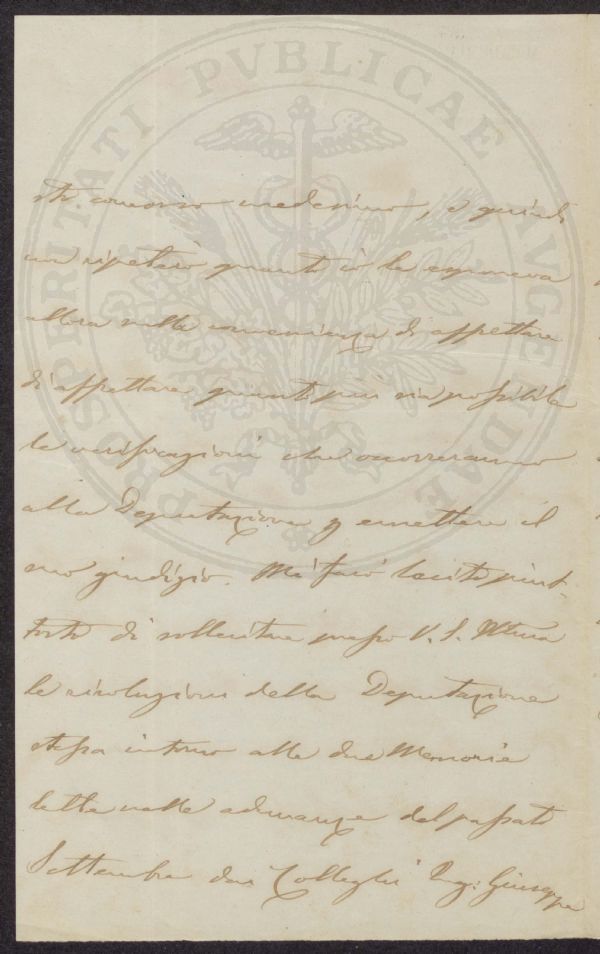 PROSPERITATI PVBLICAE AVGENDAE
sto concorso medesimo, e quindi
non ripeterò quanto io le esponeva
allora nella convenienza di affrettare
di affrettare quanto più sia possibile
le verificazioni che occorreranno
alla Deputazione p emettere il
suo giudizio. Mi farò lecito piut-
tosto di sollecitare presso V. S. Illma
le risoluzioni della Deputazione
stessa intorno alle due Memorie
lette nelle adunanze del passato
Settembre dai Colleghi Ing: Giuseppe